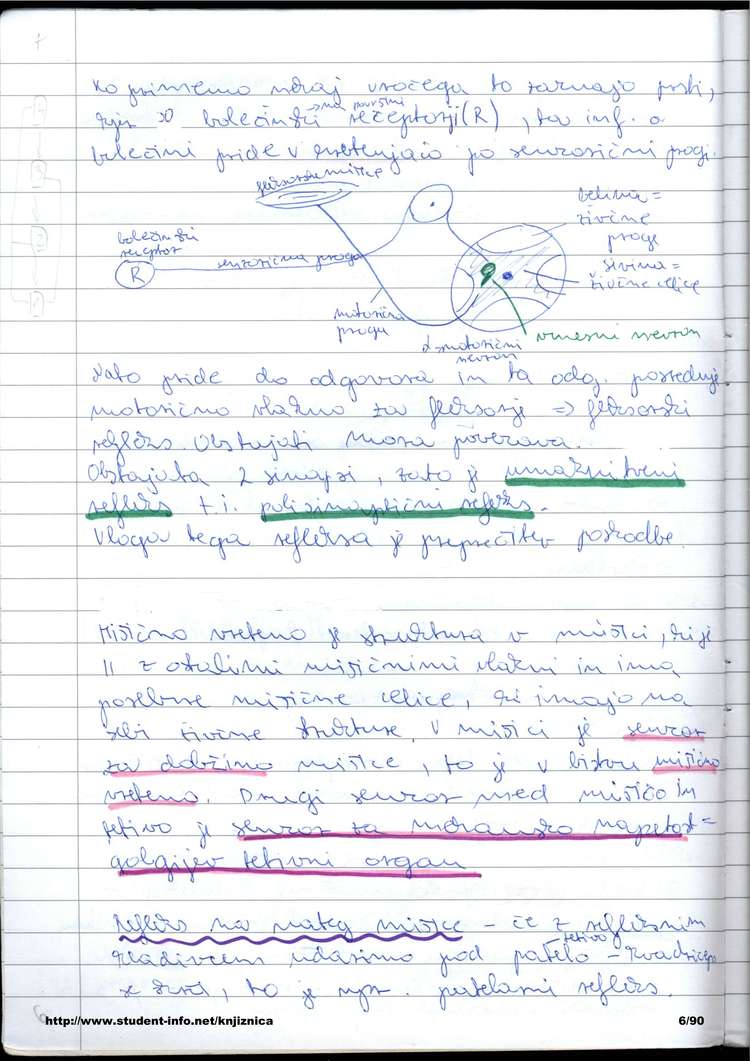 Ko primemo nekaj vročega to zaznajo prsti,
kjer so bolečinski receptorji (R), ta inf. o
→ na površini
bolečini pride v hrbtenjačo po senzorični progi.
fleksorske mišice
belina =
živčne
proge
bolečinski
receptor
R
senzorična proga
sivina =
živčne celice
motorična
proga
α motorični
nevron
vmesni nevron
Nato pride do odgovora in ta odg. posreduje
motorično vlakno za fleksorje => fleksorski
refleks. Obstajati mora povezava.
Obstajata 2 sinapsi, zato je umaknitveni
refleks t.i. polisinaptični refleks.
Vloga tega refleksa je preprečitev poškodbe.
Mišično vreteno je struktura v mišici, ki je
|| z ostalimi mišičnimi vlakni in ima
posebne mišične celice, ki imajo na
sebi živčne strukture. V mišici je senzor
za dolžino mišice, to je v bistvu mišično
vreteno. Drugi senzor med mišico in
tetivo je senzor za napetost =
golgijev tetivni organ
Refleks na nateg mišice - če z refleksnim
kladivcem udarimo pod patelo - kvadriceps
tetivo
se skrči, to je npr. patelarni refleks.
6
http://www.student-info.net/knjiznica
6/90